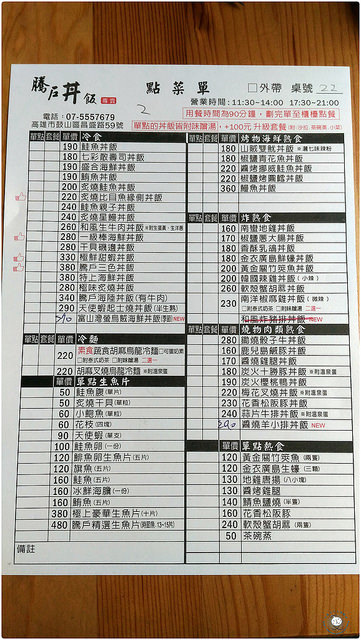 騰戶丼飯
點菜單
□外帶 桌號 22
2
營業時間:11:30~14:00 17:30~21:00
電話:07-5557679
用餐時間為90分鐘,劃完單至櫃檯點餐
高雄市鼓山區昌盛路59號
單點的丼飯皆附味噌湯,+100元 升級套餐
單點 套餐 單價 冷食
190 鮭魚丼飯
180 七彩散壽司丼飯
190 盛合海鮮丼飯
190 鮪魚丼飯
200 炙燒鮭魚丼飯
220 炙燒比目魚緣側丼飯
240 鮭魚親子丼飯
240 炙燒星鰻丼飯
260 和風生牛肉丼飯
280 一級棒海鮮丼飯
280 干貝磯遺丼飯
330 極鮮甜蝦丼飯
380 騰戶三色丼飯
380 特上海鮮丼飯
280 極味炙燒丼飯
340 騰戶海陸丼飯(有牛肉)
290 天使蝦起士燒丼飯(半生熟)
富山灣螢烏賊海鮮丼飯 NEW
單點 套餐 單價 冷麵
220 素食蔬食胡麻烏龍冷麵
220 胡麻叉燒烏龍冷麵
單價 單點生魚片
50 鮭魚腹(單片)
50 炙燒干貝(單粒)
60 小鮑魚(單粒)
60 花枝(四塊)
90 天使蝦(單支)
100 鮭魚卵(一份)
120 鮭魚卵生魚片(五片)
120 旗魚(五片)
160 鮭魚(五片)
160 冰鮮海膽(一份)
160 鮪魚(五片)
380 極上豪華生魚片(十片)
480 騰戶精選生魚片
備註
單點 套餐 單價 烤物海鮮熟食
180 山賊雙魷丼飯
180 椒鹽青花魚丼飯
220 醬烤挪威鮭魚丼飯
220 椒鹽烤圓鱈丼飯
360 鰻魚丼飯
單點 套餐 單價 炸熟食
160 南蠻地雞丼飯
170 椒鹽蔥大腸丼飯
180 香酥乳鴿丼飯
180 金衣廣島鮮蠔丼飯
200 黃金屬竹筴魚丼飯
200 韓國辣雞丼飯(小辣)
260 軟殼蟹胡蔴丼飯
230 南洋椒麻雞丼飯(微辣)
和風炸豬排丼飯 NEW
單點 套餐 單價 燒物肉類熟食
280 嫩燒骰子牛丼飯
160 鹿兒島鹹豚丼飯
170 醬燒雞腿丼飯
180 炭火十勝豚丼飯
190 炭火櫻桃鴨丼飯
220 梅花叉燒丼飯
230 花香松阪豚丼飯
240 蒜片牛排丼飯
290 醬燒羊小排丼飯 NEW
單價 單點熟食
110 黃金屬竹筴魚(兩隻)
120 金衣廣島生蠔(三顆)
130 地雞唐揚(八小塊)
130 醬烤雞腿
140 鯖魚鹽燒(半隻)
160 花香松阪豚
240 軟殼蟹胡蔴(兩隻)
50 茶碗蒸